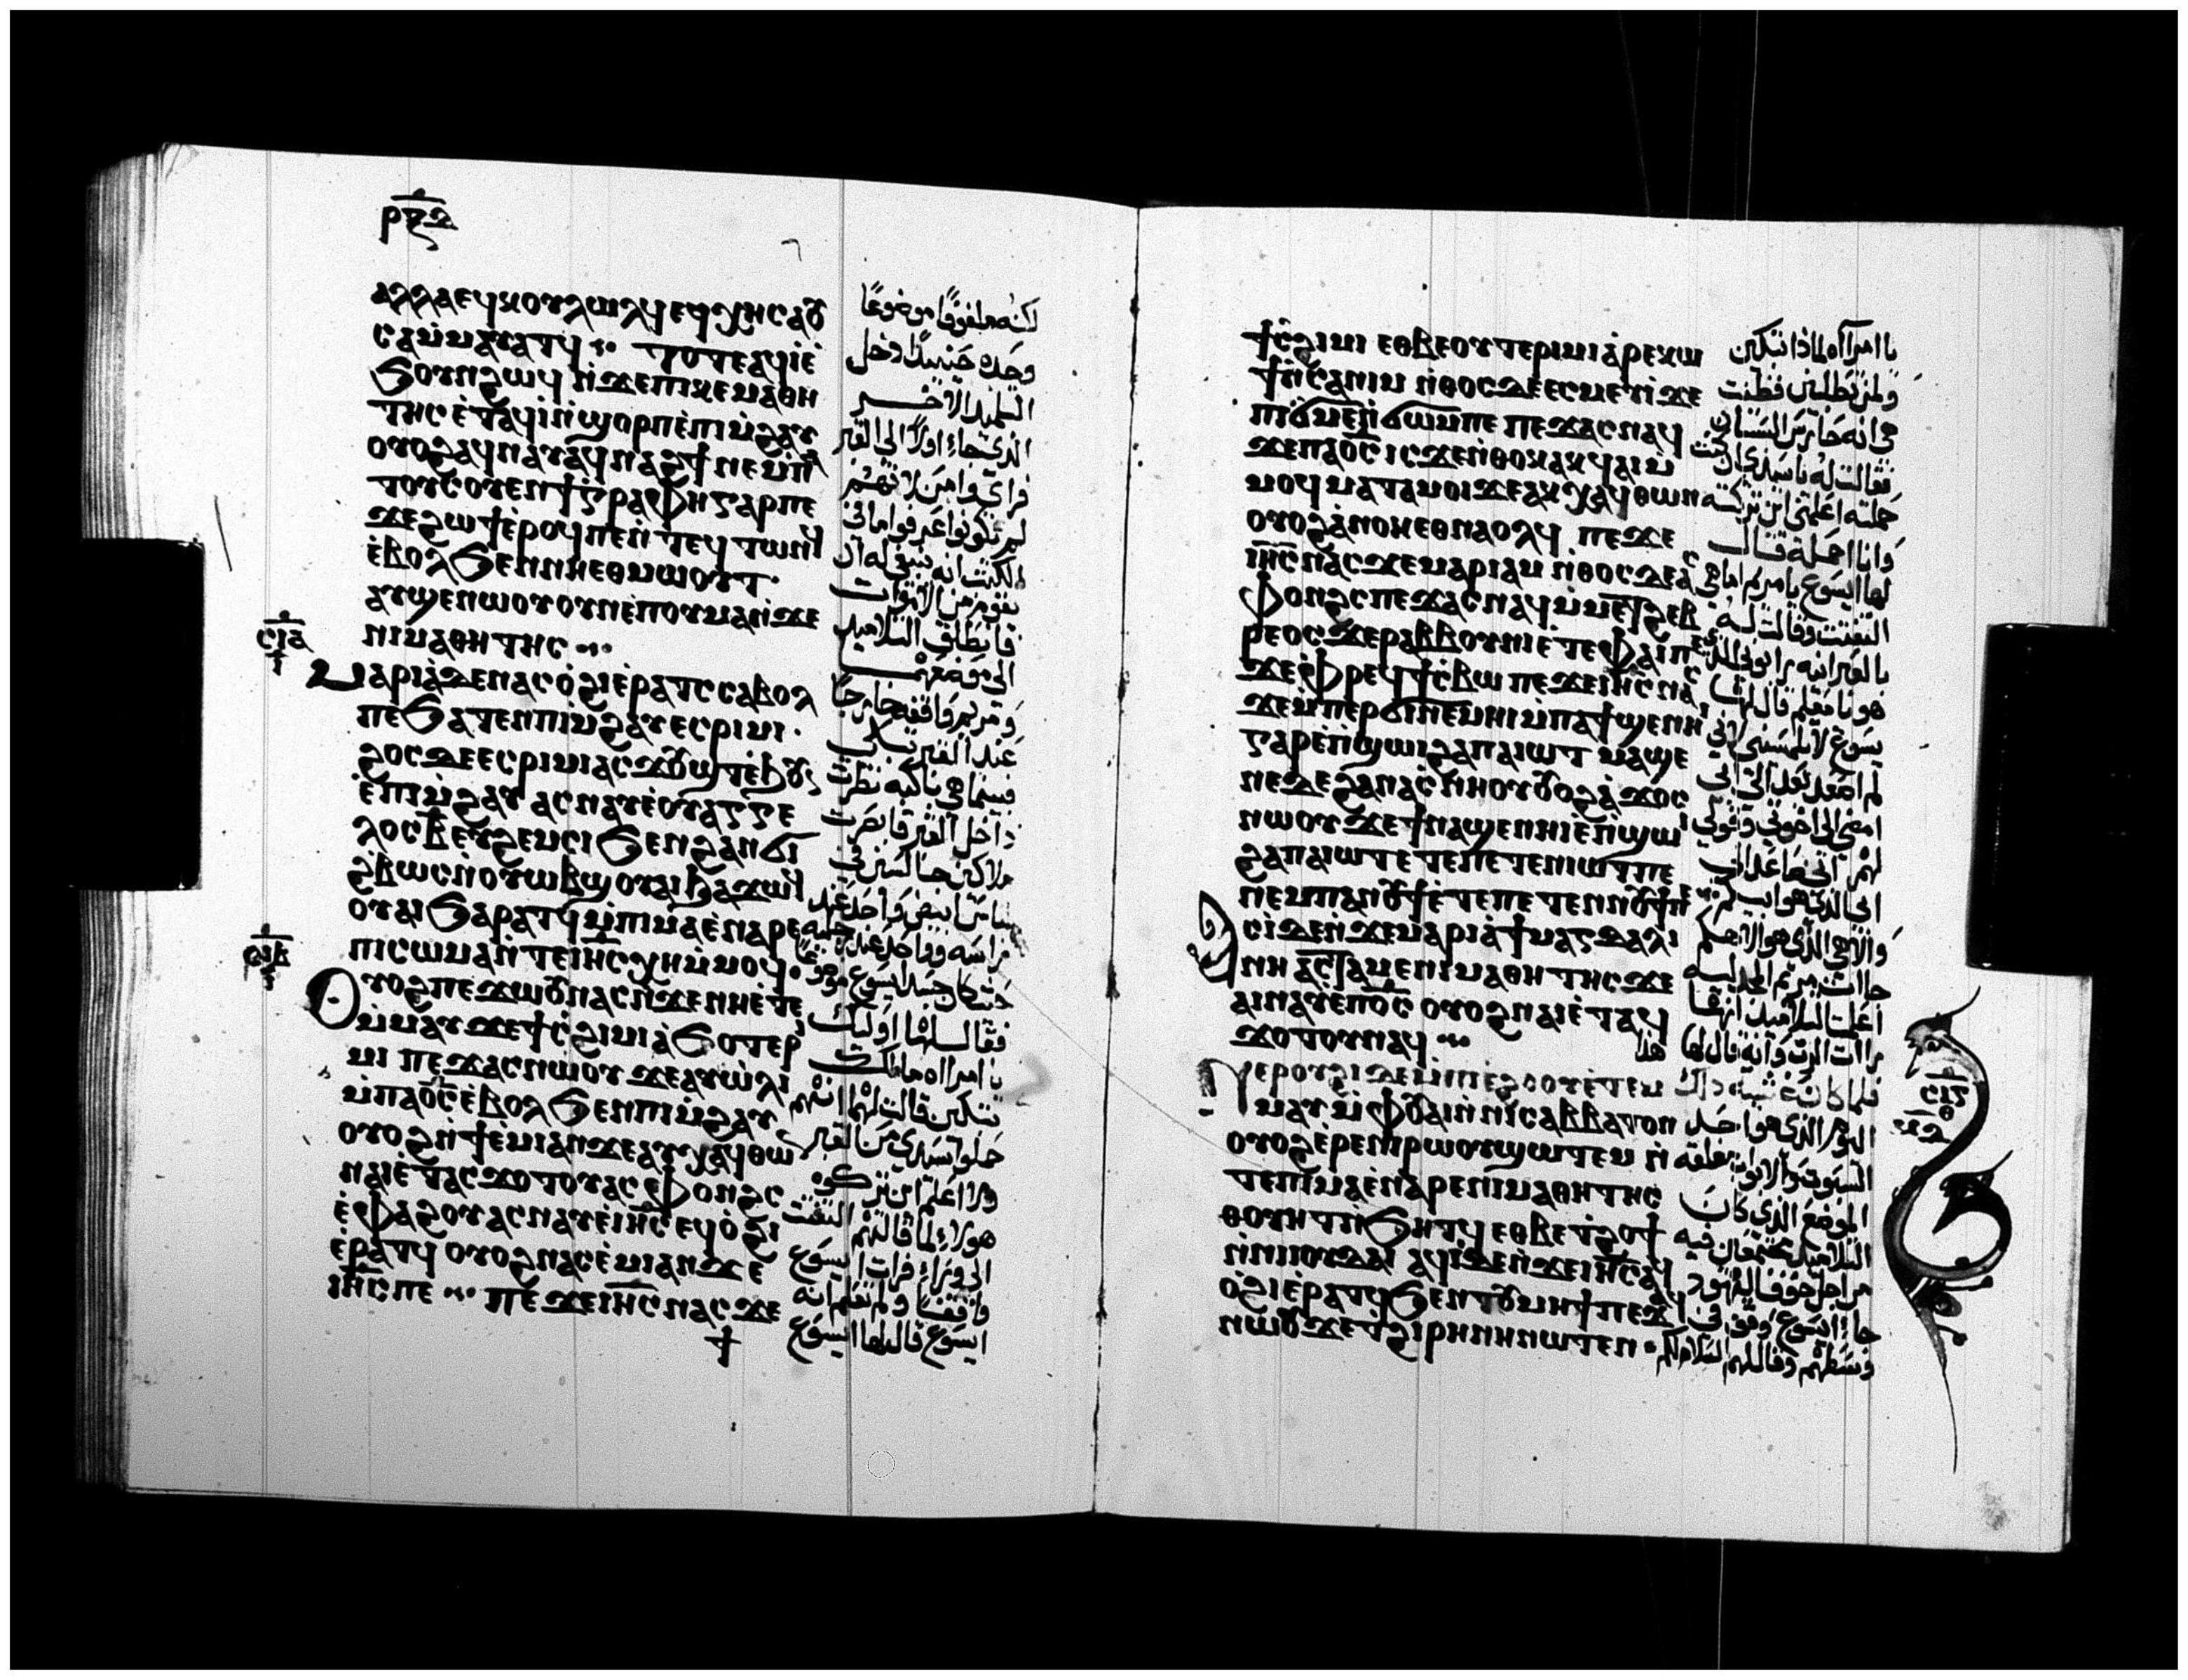 ⲣⲝⲍ
ⲁⲗⲗⲁ ⲉϥⲕⲟⲩⲗⲱⲗϥ ⲉϥⲭⲏ ⲥⲁⲟⲩ
ⲥⲁ ⲙⲙⲁⲩⲁⲧϥ ⲧⲟⲧⲉ ⲁϥⲓ ⲉ
ϧⲟⲩⲛ ϩⲱϥ ⲛϫⲉ ⲡⲓⲕⲉⲙⲁⲑⲏ
ⲧⲏⲥ ⲉⲧⲁϥⲓ ⲛϣⲟⲣⲡ ⲉⲡⲓⲙϩⲁⲩ
ⲟⲩⲟϩ ⲁϥⲛⲁⲩ ⲁϥⲛⲁϩϯ ⲛⲉ ⲙⲡⲁ
ⲧⲟⲩⲥⲟⲩⲉⲛ ϯⲅⲣⲁⲫⲏ ⲅⲁⲣ ⲡⲉ
ϫⲉ ϩⲱϯ ⲉⲣⲟϥ ⲡⲉ ⲛⲧⲉϥⲧⲱⲛϥ
ⲉⲃⲟⲗ ϧⲉⲛ ⲛⲏⲉⲑⲙⲱⲟⲩⲧ
ⲁⲩϣⲉⲛⲱⲟⲩ ⲟⲩⲛ ⲉⲡⲟⲩⲙⲁ ⲛϫⲉ
ⲛⲓⲙⲁⲑⲏⲧⲏⲥ
ⲥⲓⲁ
ⲙⲁⲣⲓⲁ ⲇⲉ ⲛⲁⲥⲟϩⲓ ⲉⲣⲁⲧⲥ ⲥⲁⲃⲟⲗ
ⲡⲉ ϧⲁⲧⲉⲛ ⲡⲓⲙϩⲁⲩ ⲉⲥⲣⲓⲙⲓ
ϩⲟⲥ ⲇⲉ ⲉⲥⲣⲓⲙⲓ ⲁⲥϫⲟⲩϣⲧ ⲉϧⲟⲩⲛ
ⲉⲡⲓⲙϩⲁⲩ ⲁⲥⲛⲁⲩ ⲉⲟⲩⲁⲅⲅⲉ
ⲗⲟⲥ ⲃ ⲉⲩϩⲉⲙⲥⲓ ϧⲉⲛ ϩⲁⲛ
ϩⲃⲱⲥ ⲛⲟⲩⲱⲃϣ ⲟⲩⲁⲓ ϧⲁϫⲱϥ
ⲟⲩⲁⲓ ϧⲁⲣⲁⲧϥ ⲙⲡⲓⲙⲁ ⲉⲛⲁⲣⲉ
ⲡⲓⲥⲱⲙⲁ ⲛⲧⲉ ⲓⲏⲥ ⲭⲏ ⲙⲙⲟϥ
ⲥⲓⲃ
ⲟⲩⲟϩ ⲡⲉϫⲱⲟⲩ ⲛⲁⲥ ⲛϫⲉ ⲛⲏⲉⲧⲉ
ⲙⲙⲁⲩ ϫⲉ ϯⲥϩⲓⲙⲓ ⲁϧⲟ ⲧⲉⲣⲓ
ⲙⲓ ⲡⲉϫⲁⲥ ⲛⲱⲟⲩ ϫⲉ ⲁⲩⲱⲗⲓ
ⲙⲡⲁⲟⲥ ⲉⲃⲟⲗ ϧⲉⲛ ⲡⲓⲙϩⲁⲩ
ⲟⲩⲟϩ ⲛϯⲉⲙⲓ ⲁⲛ ϫⲉ ⲁⲩⲭⲁϥ ⲑⲱⲛ
ⲛⲁⲓ ⲉⲧⲁⲥϫⲟⲧⲟⲩ ⲁⲥⲫⲟⲛϩⲥ
ⲉⲫⲁϩⲟⲩ ⲁⲥⲛⲁⲩ ⲉⲓⲏⲥ ⲉϥⲟϩⲓ
ⲉⲣⲁⲧϥ ⲟⲩⲟϩ ⲛⲁⲥⲉⲙⲓ ⲁⲛ ϫⲉ
ⲓⲏⲥ ⲡⲉ ⲡⲉϫⲉ ⲓⲏⲥ ⲛⲁⲥ ϫⲉ
لكنه ملفوفًا موضوعًا
وحده حينيذ دخل
التلميذ الاخر
الذي جاء اولاً الى القبر
فراى وامن لانهم
لم يكونوا عرفوا ما في
الكتب انه ينبغي له ان
يقوم من الاموات
فانطلق التلاميذ
الى موضعهم
ومريم واقفه خارجًا
عند القبر تبكي
فبينما هي باكيه نظرت
داخل القبر فابصرت
ملاكين جالسين في
ثياب بيض واحد عند
راسه وواحد عند رجليه
حيث كان جسد ايسوع موضوعًا
فقالا لها اوليك
يا امراه ما لك
تبكين قالت لهما انهم
حملوا سيدي من القبر
ولا اعلم اين تركوه
هولاء لما قالتهم التفتت
الى وراء فرات ايسوع
واقفًا ولم تعلم انه
ايسوع قال لها ايسوع
ϯⲥϩⲓⲙⲓ ⲉⲑⲃⲉⲟⲩ ⲧⲉⲣⲓⲙⲓ ⲁⲣⲉⲕⲱ
ϯ ⲛⲥⲁ ⲛⲓⲙ ⲛⲑⲟⲥ ⲇⲉ ⲉⲥⲙⲉⲩⲓ ϫⲉ
ⲡⲓϭⲙⲉ ⲛϭⲱⲙ ⲡⲉ ⲡⲉϫⲁⲥ ⲛⲁϥ
ϫⲉ ⲡⲁⲟⲥ ⲓⲥϫⲉ ⲛⲑⲟⲕ ⲁⲕϥⲁⲓ ⲙ
ⲙⲟϥ ⲙⲁⲧⲁⲙⲟⲓ ϫⲉ ⲁⲕⲭⲁϥ ⲑⲱⲛ
ⲟⲩⲟϩ ⲁⲛⲟⲕ ⲉⲑⲛⲁⲟⲗϥ ⲡⲉϫⲉ
ⲓⲏⲥ ⲛⲁⲥ ϫⲉ ⲙⲁⲣⲓⲁⲙ ⲛⲑⲟⲥ ⲇⲉ ⲁⲥ
ⲫⲟⲛϩⲥ ⲡⲉϫⲁⲥ ⲛⲁϥ ⲙⲙⲉⲧϩⲉⲃ
ⲣⲉⲟⲥ ϫⲉ ⲣⲁⲃⲃⲟⲩⲛⲓ ⲉⲧⲉ ⲫⲁⲓ ⲡⲉ
ϫⲉ ⲫⲣⲉϥϯⲥⲃⲱ ⲡⲉϫⲉ ⲓⲏⲥ ⲛⲁⲥ
ϫⲉ ⲙⲡⲉⲣϭⲓ ⲛⲉⲙⲏⲓ ⲙⲡⲁϯϣⲉⲛⲏⲓ
ⲅⲁⲣ ⲉⲡϣⲱⲓ ϩⲁ ⲡⲁⲓⲱⲧ ⲙⲁϣⲉ
ⲛⲉ ⲇⲉ ϩⲁ ⲛⲁⲥⲛⲏⲟⲩ ⲟⲩⲟϩ ⲁϫⲟⲥ
ⲛⲱⲟⲩ ϫⲉ ϯⲛⲁϣⲉⲛⲏⲓ ⲉⲡϣⲱⲓ
ϩⲁ ⲡⲁⲓⲱⲧ ⲉⲧⲉ ⲡⲉⲧⲉⲛⲓⲱⲧ ⲡⲉ
ⲛⲉⲙ ⲡⲁⲛⲟⲩϯ ⲉⲧⲉ ⲡⲉⲧⲉⲛⲛⲟⲩϯ ⲡⲉ
ⲥⲓ ⲇⲉ ⲛϫⲉ ⲙⲁⲣⲓⲁ ϯⲙⲁⲅⲇⲁⲗⲓ
ⲛⲏ ⲁⲥⲧⲁⲙⲉ ⲛⲓⲙⲁⲑⲏⲧⲏⲥ ϫⲉ
ⲁⲓⲛⲁⲩ ⲉⲡⲟⲥ ⲟⲩⲟϩ ⲛⲁⲓ ⲉⲧⲁϥ
ϫⲟⲧⲟⲩ ⲛⲁϥ
ⲉⲣⲟⲩϩⲓ ⲇⲉ ⲙⲡⲓⲉϩⲟⲟⲩ ⲉⲧⲉⲙ
ⲙⲁⲩ ⲙⲫⲟⲩⲁⲓ ⲛⲛⲓⲥⲁⲃⲃⲁⲧⲟⲛ
ⲟⲩⲟϩ ⲉⲣⲉ ⲛⲓⲣⲱⲟⲩ ϣⲱⲧⲉⲙ ⲛ
ⲧⲉ ⲡⲓⲙⲁ ⲉⲛⲁⲣⲉ ⲛⲓⲙⲁⲑⲏⲧⲏⲥ
ⲑⲟⲩⲏⲧ ⲛϧⲏⲧϥ ⲉⲑⲃⲉ ⲧϩⲟϯ
ⲛⲛⲓⲓⲟⲩⲇⲁⲓ ⲁϥⲓ ⲇⲉ ⲛϫⲉ ⲓⲏⲥ ⲁϥ
ⲟϩⲓ ⲉⲣⲁⲧϥ ϧⲉⲛ ⲧⲟⲩⲙⲏϯ ⲡⲉϫⲁϥ
ⲛⲱⲟⲩ ϫⲉ ⲧϩⲓⲣⲏⲛⲏ ⲛⲱⲧⲉⲛ
يا امراه لماذا تبكين
ولمن تطلبين فظنت
هي انه حارس البستان
فقالت له يا سيدي ان كنت
حملته اعلمني اين تركته
وانا احمله قال
لها ايسوع يا مريم اما هي
التفتت وقالت له
بالعبرانيه رابوني الذي
هو يا معلم قال لها
يسوع لا تلمسيني لاني
لم اصعد بعد الى ابي
امضي الى اخوتي وقولي
لهم اني صاعد الى ابي
الذي هو ابيكم
والاهي الذي هو الاهكم
جاات مريم المجدليه
اعلمت التلاميذ انها
رات الرب وانه قال لها هذا
فلما كان عشية ذلك
اليوم الذي هو احد
السبوت والابواب مغلقه
الموضع الذي كان
التلاميذ مجتمعين فيه
من اجل خوف اليهود
جاء ايسوع وقف في
وسطهم وقال لهم السلام لكم